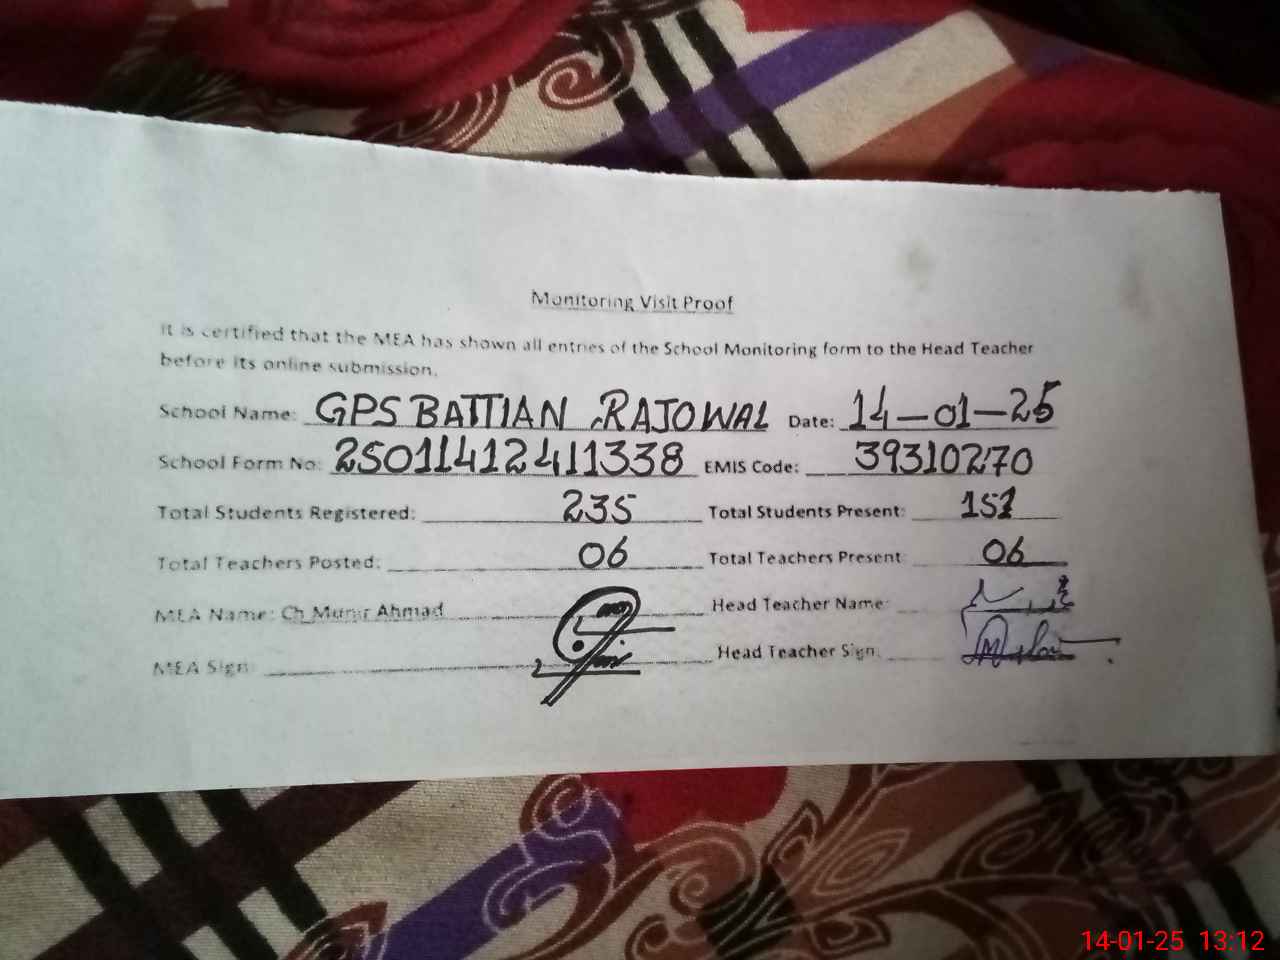 Monitoring Visit Proof
It is certified that the MEA has shown all entries of the School Monitoring form to the Head Teacher
before its online submission.
School Name: GPS BATTIAN RAJOWAL Date: 14-01-25
School Form No: 25011412411338 EMIS Code: 39310270
Total Students Registered: 235 Total Students Present: 151
Total Teachers Posted: 06 Total Teachers Present: 06
MEA Name: Ch Munir Ahmad Head Teacher Name:
MEA Sign: Head Teacher Sign:
14-01-25 13:12